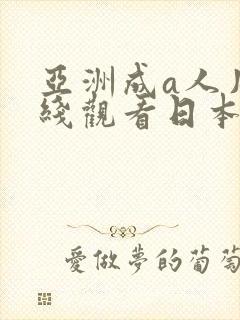 亞洲成a人
綫觀看日本
愛做夢的葡萄